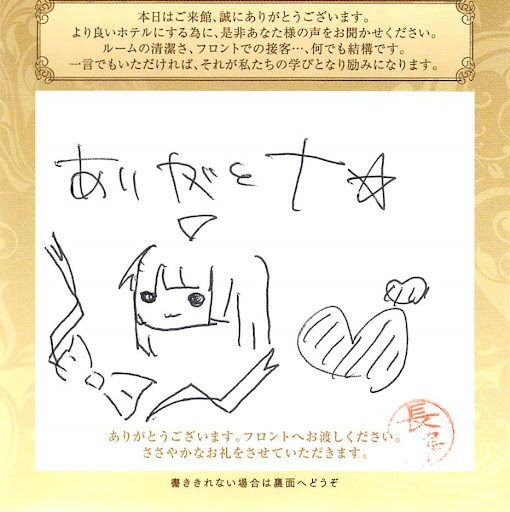 本日はご来館、誠にありがとうございます。
より良いホテルにする為に、是非あなた様の声をお聞かせください。
ルームの清潔さ、フロントでの接客…、何でも結構です。
一言でもいただければ、それが私たちの学びとなり励みになります。
ありがと
ありがとうございます。フロントへお渡しください。
ささやかなお礼をさせていただきます。
長
書ききれない場合は裏面へどうぞ